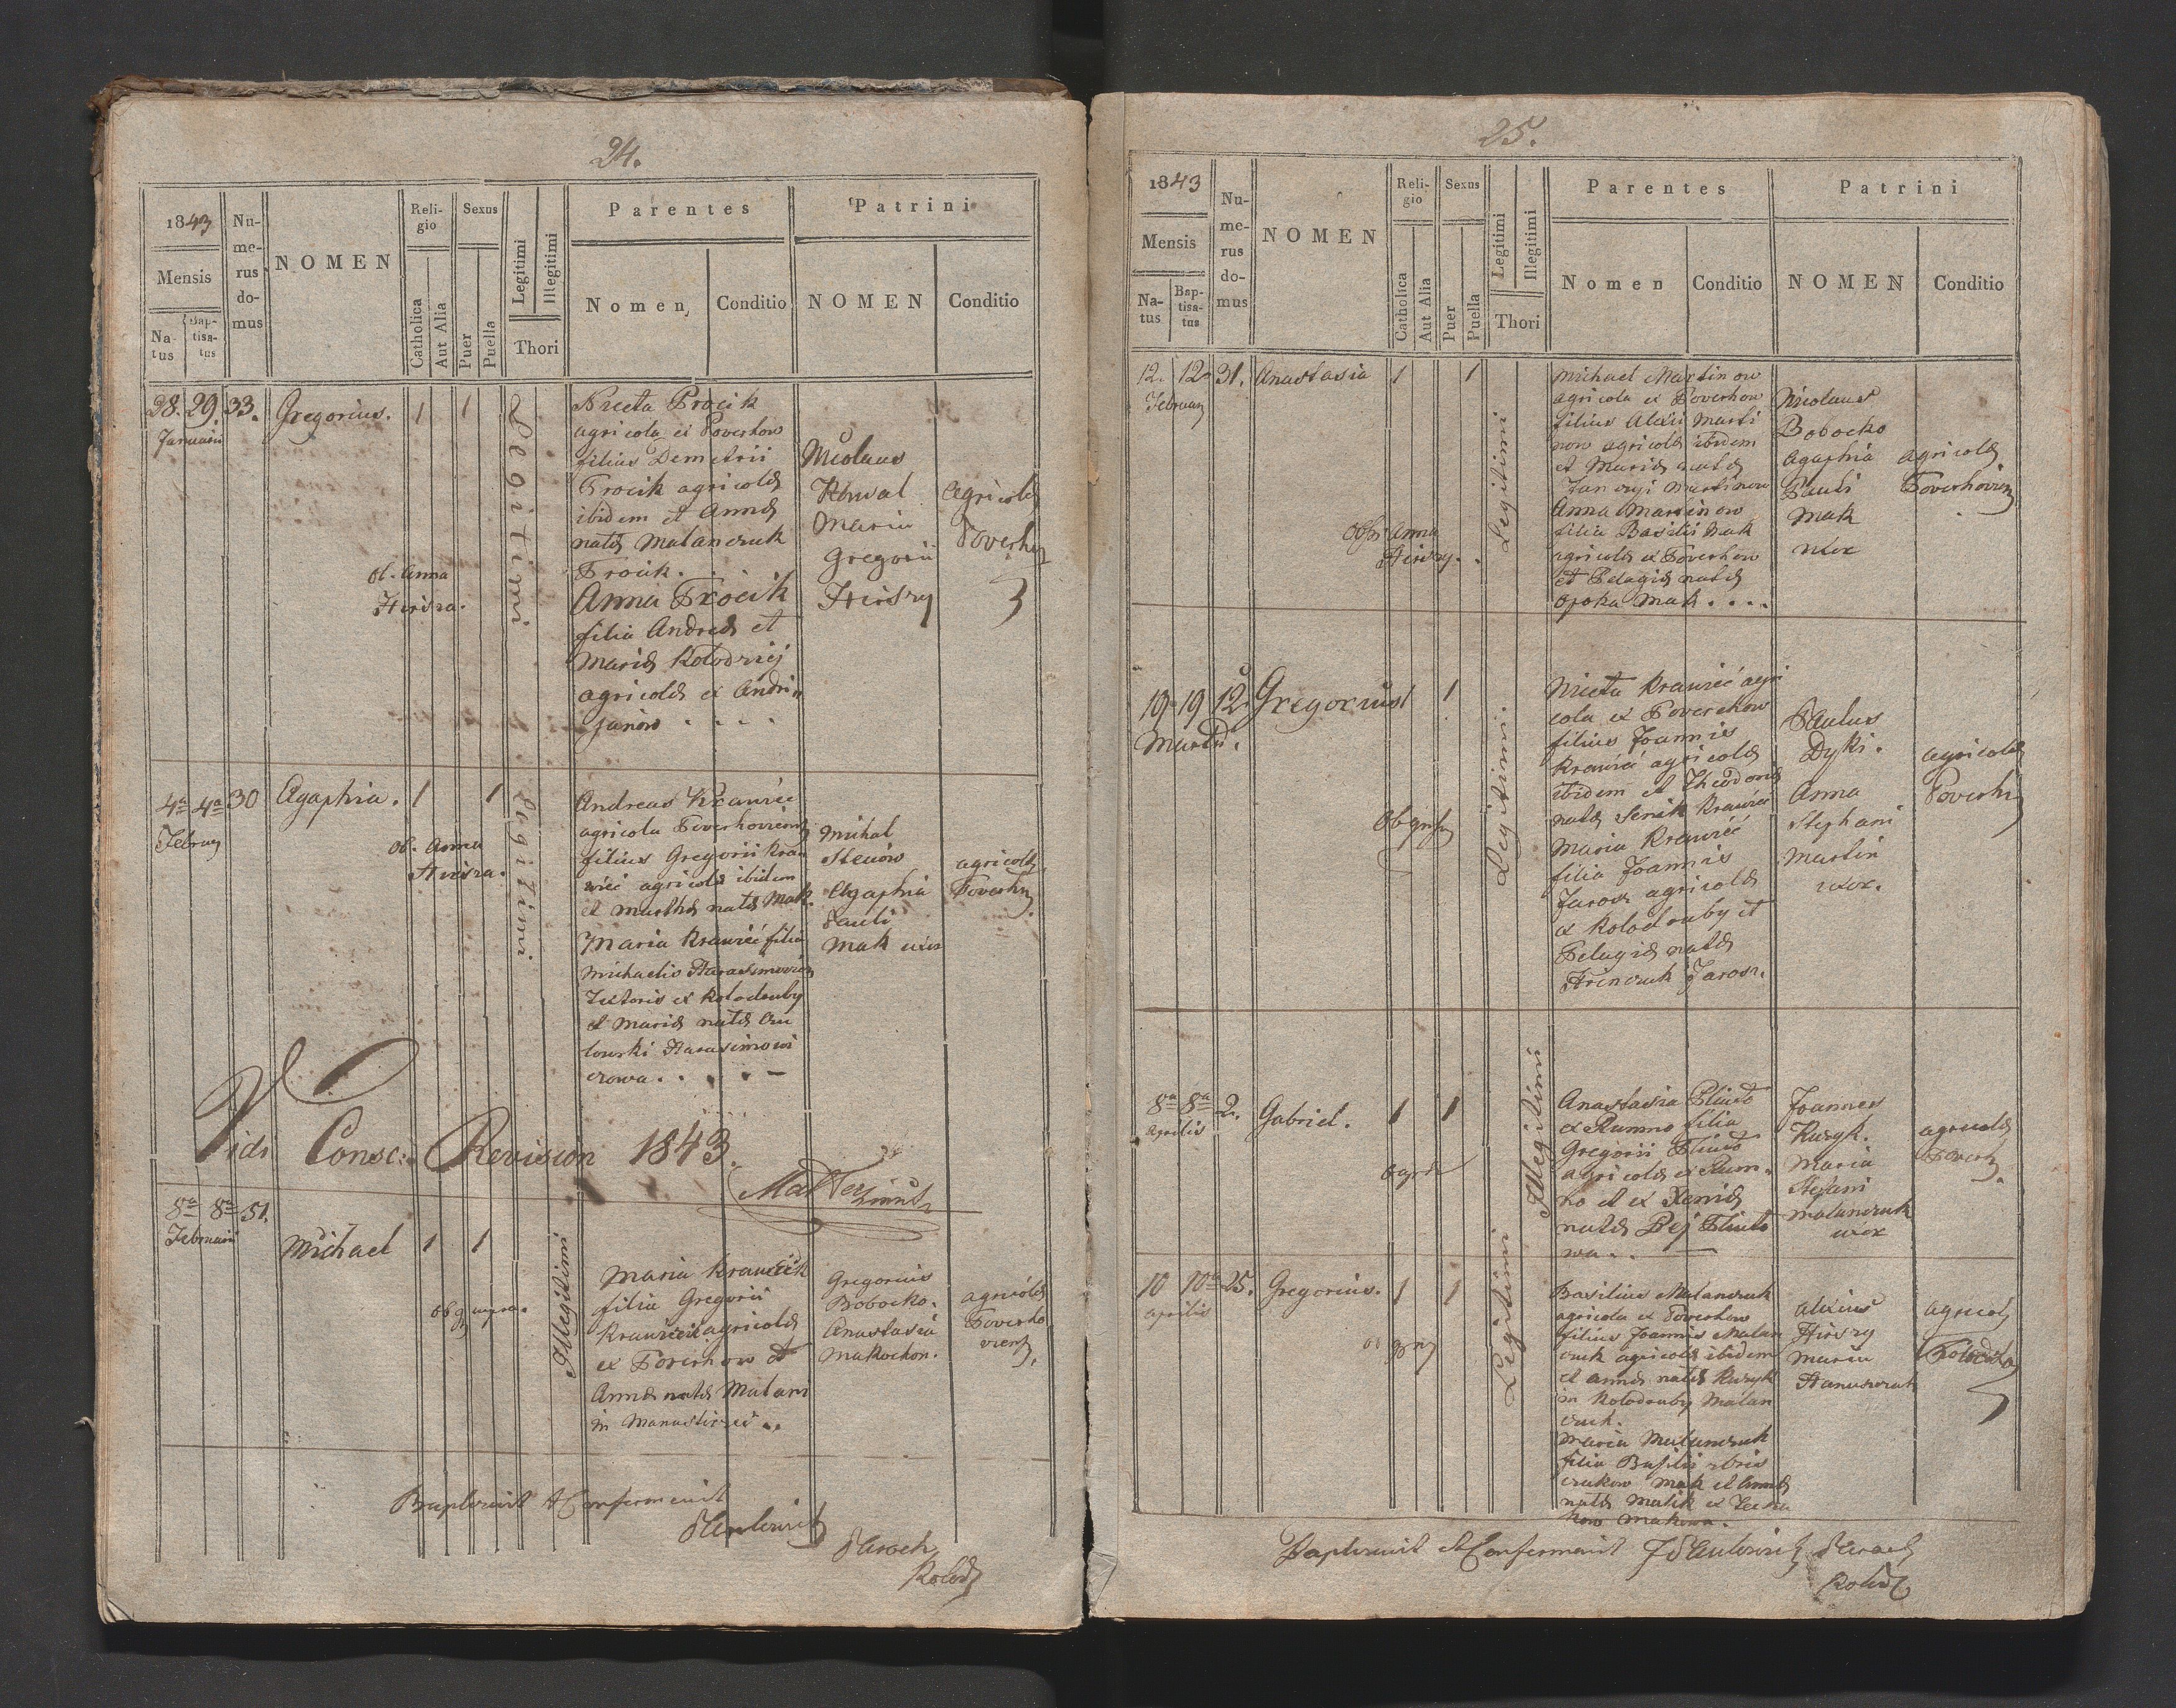 24.
1843
Mensis
Na-
tus
Bap-
tisa-
tus
Nu-
me-
rus
do-
mus
NOMEN
Reli-
gio
Catholica
Aut Alia
Sexus
Puer
Puella
Legitimi
Illegitimi
Thori
Parentes
Nomen
Conditio
Patrini
NOMEN
Conditio
28. 29. 33. Gregorius. 1 1
Januarii
Legitimi
ob. Anna
Hirsza.
Niceta Procik
agricola ex Poverhow
filius Demetrii
Procik agricolæ
ibidem et Annæ
natæ Malanczuk
Procik. .
Anna Procik
filia Andreæ et
Mariæ Kolodziej
agricolæ ex Andri
janow . . . .
Nicolaus
Kowal
Maria
Gregorii
Hirszy
Agricolæ
Poverh
4ta 4ta 30 Agaphia. 1 1
Februar
ob. Anna
Hirsza.
Legitimi
Andreas Krawiec
agricola Poverhoviens
filius Gregorii Kra
wiec agricolæ ibidem
et Marthæ natæ Mak.
Maria Krawiec filia
Michaelis Harasimowicz
Textoris ex Kolodruby
et Mariæ natæ
lowski Harasimowi
czowa. . . . . –
Michal
Steciow
Agaphia
Pauli
Mak uxor
agricolæ
Poverh
Vidi Consc: Revision 1843.
8va 8va 51.
Februarii
Michael 1 1
Illegitimi
Maria Krawczik
filia Gregorii
Krawczik agricolæ
ex Poverhow et
Annæ natæ Malani
in Manasterzec ..
Gregorius
Bobocko.
Anastasia
Makochon.
agricolæ
Poverho
viens
Baptisavit et Confirmavit
Paroch
Kolod
25.
1843
Mensis
Na-
tus
Bap-
tisa-
tus
Nu-
me-
rus
do-
mus
NOMEN
Reli-
gio
Catholica
Aut Alia
Sexus
Puer
Puella
Legitimi
Illegitimi
Thori
Parentes
Nomen
Conditio
Patrini
NOMEN
Conditio
12. 12. 31. Anastasia 1 1
Februar
Anna
Hirszy. .
Legitimi
Michael Martinow
agricola ex Poverhow
filius Alexii Marti
now agricolæ ibidem
et Mariæ natæ
Martinow
Anna Martinow
filia Basilii Mak
agricolæ ex Poverhow
et Pelagiæ natæ
Opoka Mak . . . .
Nicolaus
Bobocko
Agaphia
Pauli
Mak
uxor
agricolæ
Poverhoviens
19 19 12. Gregorius 1 1
Martii.
Legitimi.
Niceta Krawiec agri
cola ex Poverchow
filius Joannis
Krawiec agricolæ
ibidem et Theodoræ
natæ Senik Krawiec
Maria Krawiec
filia Joannis
Jarosz agricolæ
ex Kolodruby et
Pelagiæ natæ
Hrenczuk Jarosz.
Paulus
Dyki.
Anna
Stephani
Martin
uxor.
agricolæ
Poverh
8va 8va 2. Gabriel. 1 1
Aprilis
Illegitimi
Anastasia
ex Rumno filia
Gregorii
agricolæ ex Rum-
no et ex Xeniæ
natæ
wa. .
Joannes
Kuzyk.
Maria
Stefani
Malanczuk
uxor
agricolæ
Poverh.
10 10ma 25. Gregorius. 1 1
Aprilis
Legitimi
Basilius Malanczuk
agricola ex Poverhow
filius Joannis Malan
czuk agricolæ ibidem
et Annæ natæ Kuzyk
in Kolodruby Malan
czuk.
Maria Malanczuk
filia Basilii
Mak et Annæ
natæ Malik ex
Makowa.
Alexius
Hirszy
Maria
Hanusczuk
agricol
Baptisavit et Confirmavit Paroch
Kolod